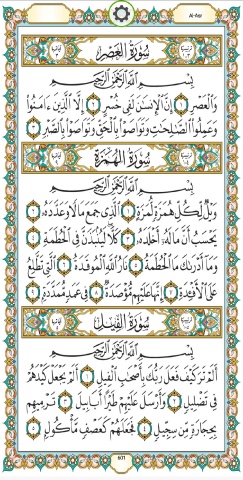 Al-Asr
سُورَةُ الْعَصْرِ
بِسْمِ اللَّهِ الرَّحْمَٰنِ الرَّحِيمِ
وَالْعَصْرِ ١ إِنَّ الْإِنسَانَ لَفِي خُسْرٍ ٢ إِلَّا الَّذِينَ ءَامَنُوا
وَعَمِلُوا الصَّالِحَاتِ وَتَوَاصَوْا بِالْحَقِّ وَتَوَاصَوْا بِالصَّبْرِ ٣
سُورَةُ الْهُمَزَةِ
بِسْمِ اللَّهِ الرَّحْمَٰنِ الرَّحِيمِ
وَيْلٌ لِّكُلِّ هُمَزَةٍ لُّمَزَةٍ ١ الَّذِي جَمَعَ مَالًا وَعَدَّدَهُ ٢
يَحْسَبُ أَنَّ مَالَهُ أَخْلَدَهُ ٣ كَلَّا لَيُنبَذَنَّ فِي الْحُطَمَةِ ٤
وَمَا أَدْرَاكَ مَا الْحُطَمَةُ ٥ نَارُ اللَّهِ الْمُوقَدَةُ ٦ الَّتِي تَطَّلِعُ
عَلَى الْأَفْئِدَةِ ٧ إِنَّهَا عَلَيْهِم مُّؤْصَدَةٌ ٨ فِي عَمَدٍ مُّمَدَّدَةٍ ٩
سُورَةُ الْفِيلِ
بِسْمِ اللَّهِ الرَّحْمَٰنِ الرَّحِيمِ
أَلَمْ تَرَ كَيْفَ فَعَلَ رَبُّكَ بِأَصْحَابِ الْفِيلِ ١ أَلَمْ يَجْعَلْ كَيْدَهُمْ
فِي تَضْلِيلٍ ٢ وَأَرْسَلَ عَلَيْهِمْ طَيْرًا أَبَابِيلَ ٣ تَرْمِيهِم
بِحِجَارَةٍ مِّن سِجِّيلٍ ٤ فَجَعَلَهُمْ كَعَصْفٍ مَّأْكُولٍ ٥
601